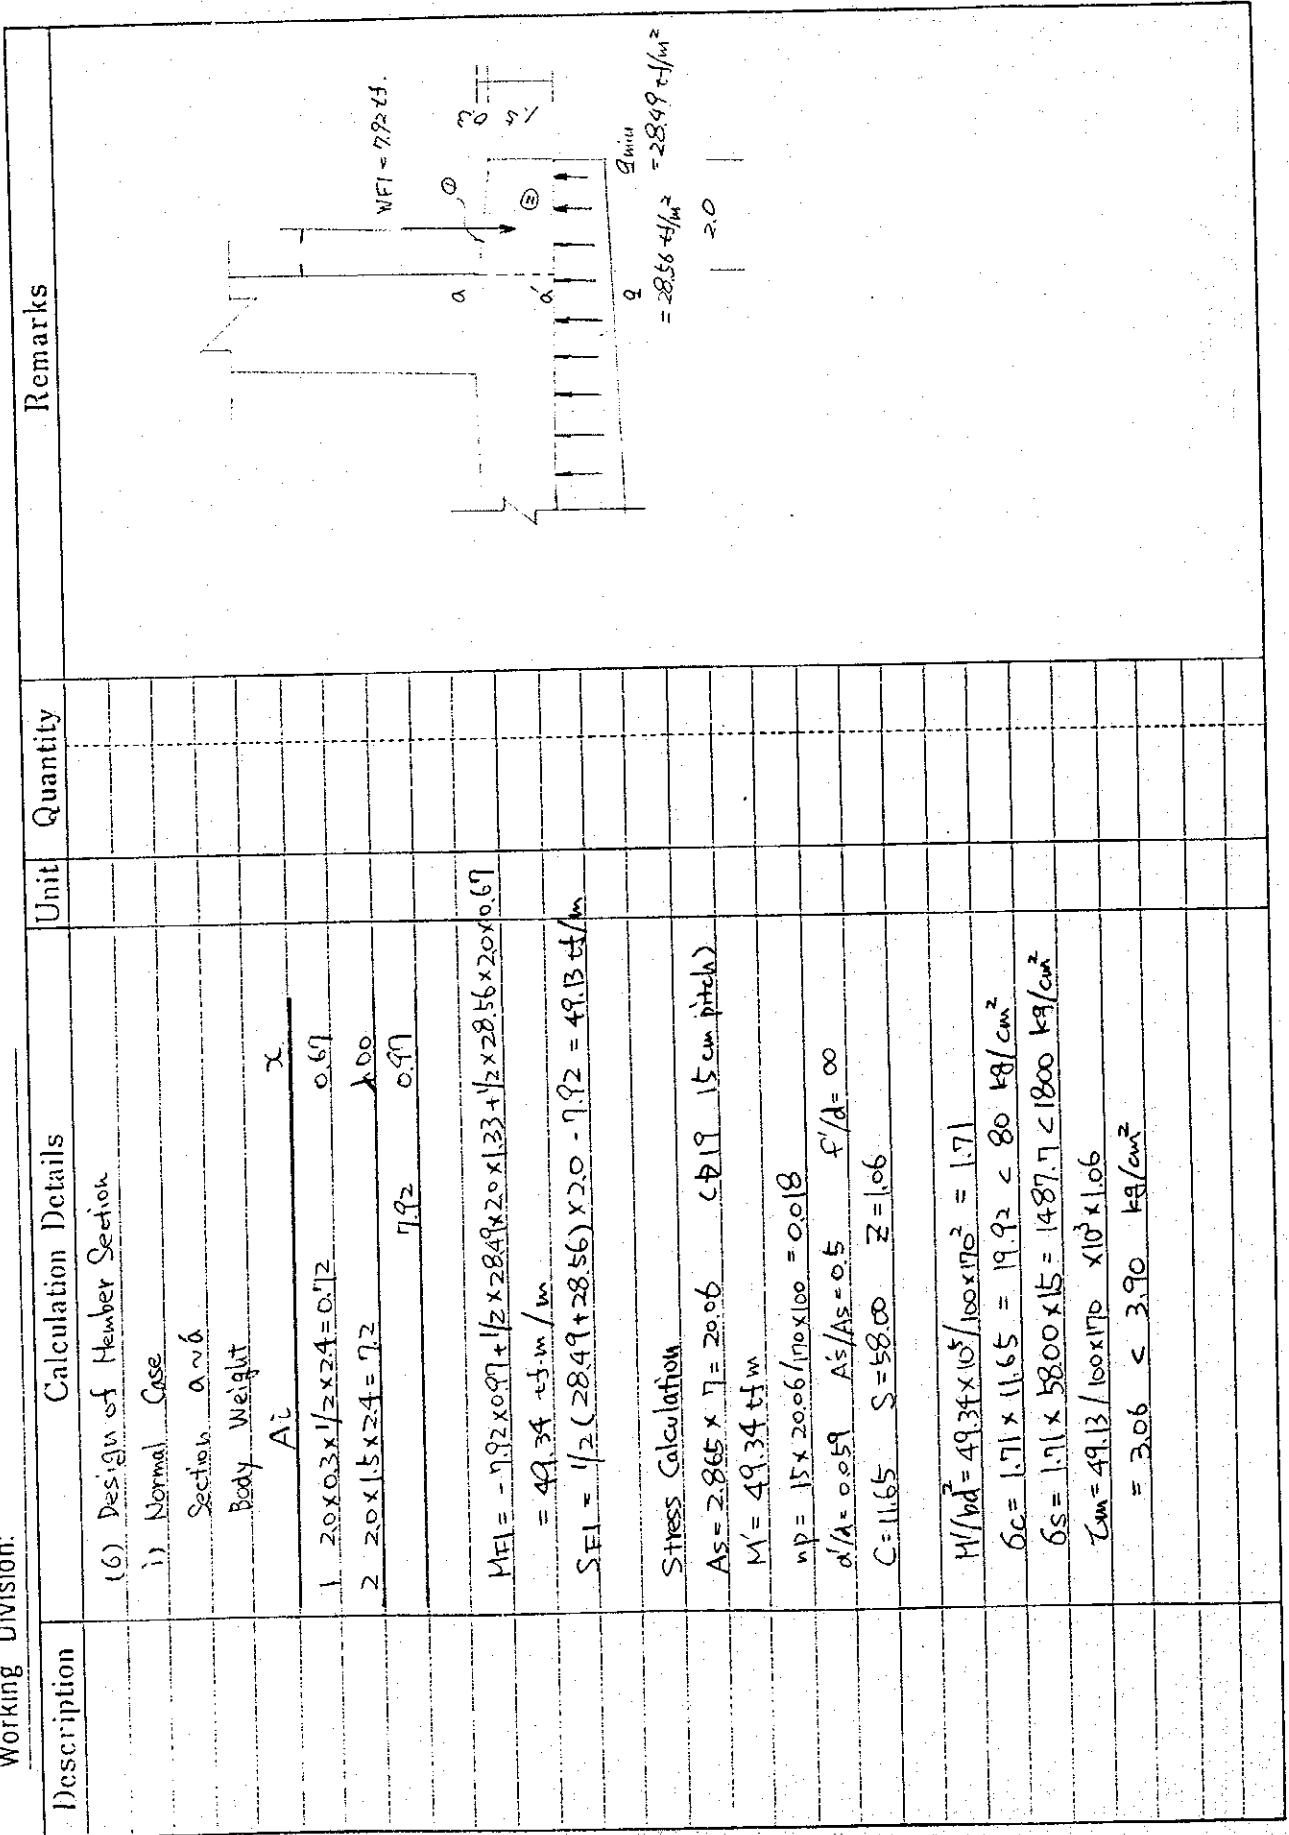 Working Division:
Description Calculation Details Unit Quantity Remarks
(6) Design of Member Section
i) Normal Case
Section a~a'
Body Weight
Ai x
1 2.0×0.3×1/2×2.4=0.72 0.67
2 2.0×1.5×2.4=7.2 1.00
7.92 0.97
MF1 = -7.92×0.97+1/2×28.49×2.0×1.33+1/2×28.56×2.0×0.67
= 49.34 tf·m/m
SF1 = 1/2(28.49+28.56)×2.0-7.92=49.13 tf/m
Stress Calculation
As=2.865×7=20.06 (D19 15cm pitch)
M'=49.34 tfm
np=15×20.06/170×100=0.018
d'/d=0.059 A's/As=0.5 f'/d=∞
C=11.65 S=58.00 Z=1.06
M'/bd²=49.34×10⁵/100×170²=1.71
6c=1.71×11.65=19.92<80 kg/cm²
6s=1.71×58.00×15=1487.7<1800 kg/cm²
τm=49.13/100×170 ×10³×1.06
=3.06<3.90 kg/cm²
WF1=7.92tf.
①
0.3
a
②
1.5
a'
q
=28.56 tf/m²
qmin
=28.49 tf/m²
2.0